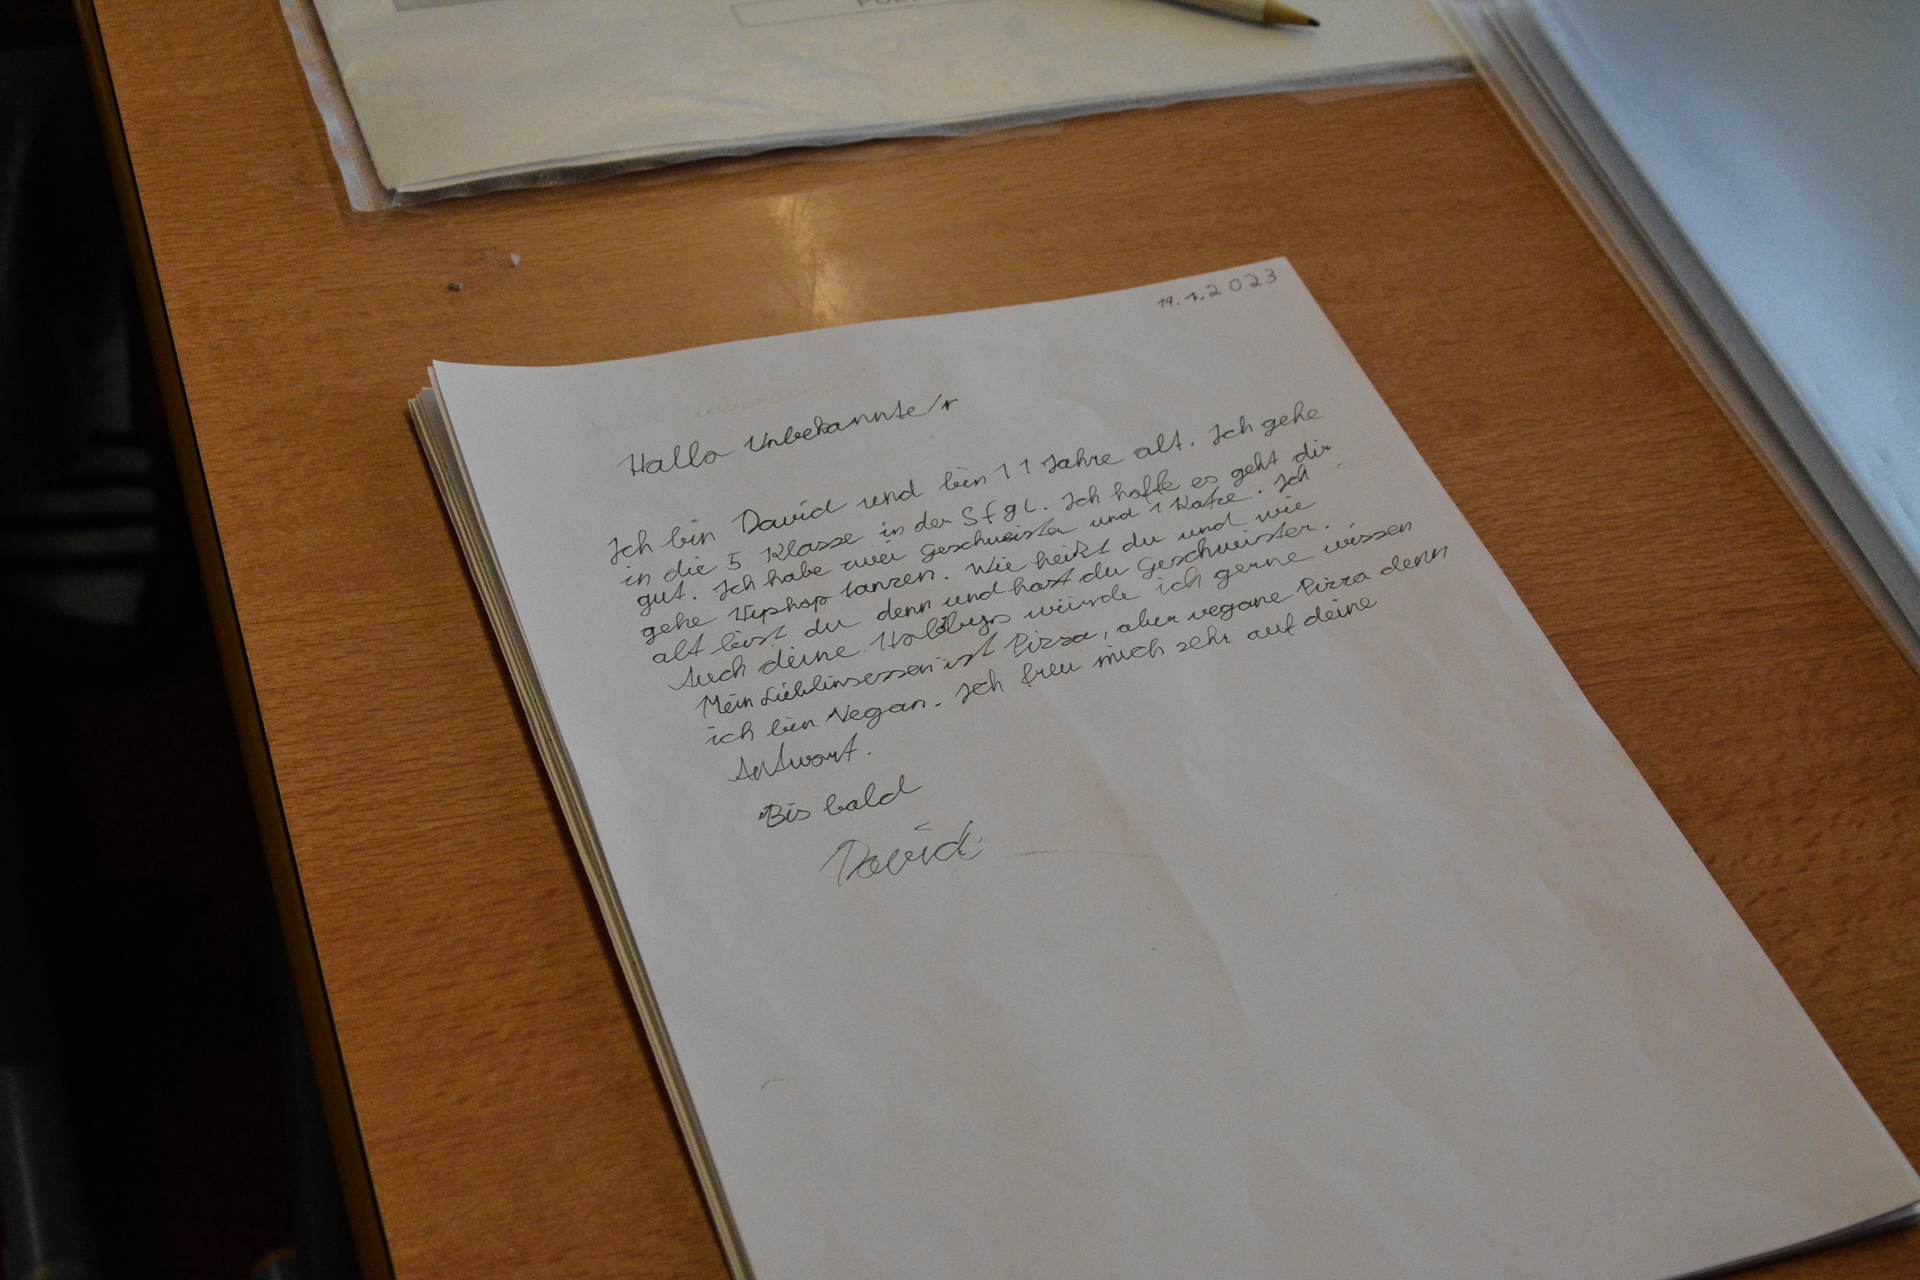 19.1.2023
Hallo Unbekannte/r
Ich bin David und bin 11 Jahre alt. Ich gehe
in die 5 Klasse in der Sfgl. Ich hoffe es geht dir
gut. Ich habe zwei Geschwister und 1 Katze. Ich
gehe Hiphop tanzen. Wie heißt du und wie
alt bist du denn und hast du Geschwister.
Auch deine Hobbys würde ich gerne wissen
Mein Lieblinsessen ist Pizza, aber vegane Pizza denn
ich bin Vegan. Ich freu mich sehr auf deine
Antwort.
Bis bald
David